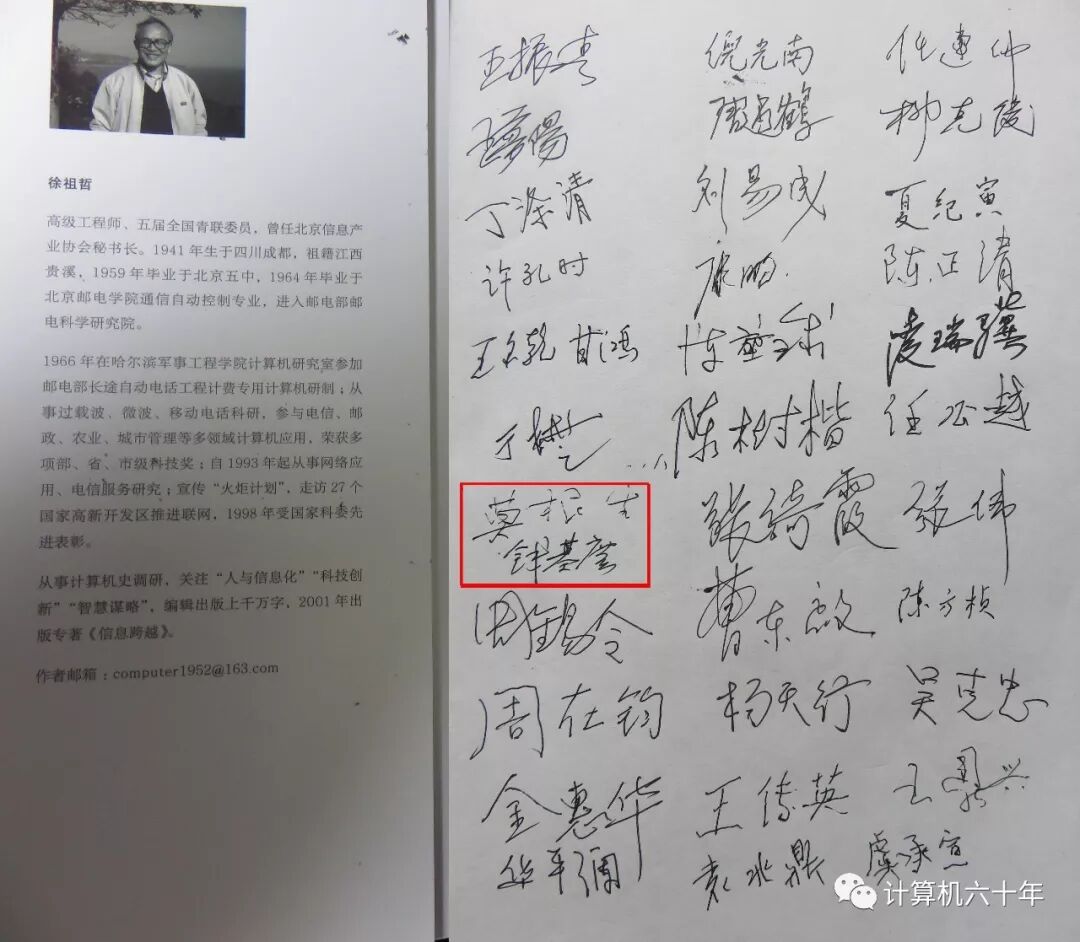 徐祖哲
高级工程师、五届全国青联委员，曾任北京信息产
业协会秘书长。1941 年生于四川成都，祖籍江西
贵溪，1959 年毕业于北京五中，1964 年毕业于
北京邮电学院通信自动控制专业，进入邮电部邮
电科学研究院。
1966 年在哈尔滨军事工程学院计算机研究室参加
邮电部长途自动电话工程计费专用计算机研制；从
事过载波、微波、移动电话科研，参与电信、邮
政、农业、城市管理等多领域计算机应用，荣获多
项部、省、市级科技奖；自 1993 年起从事网络应
用、电信服务研究；宣传“火炬计划”，走访 27 个
国家高新开发区推进联网，1998 年受国家科委先
进表彰。
从事计算机史调研，关注“人与信息化”“科技创
新”“智慧谋略”，编辑出版上千万字，2001 年出
版专著《信息跨越》。
作者邮箱：computer1952@163.com
王振 倪光南 任建仲
柳克俊
丁涤清 刘易成 夏纪寅
许孔时 康鹏 陈正清
甘鸿 凌瑞骥
陈树楷 任公越
莫根生 张绮霞 张伟
周锡令 曹东启 陈方桢
周在钧 杨天行 吴克忠
金惠华 王传英
华平澜 袁兆鼎 虞承宣
计算机六十年